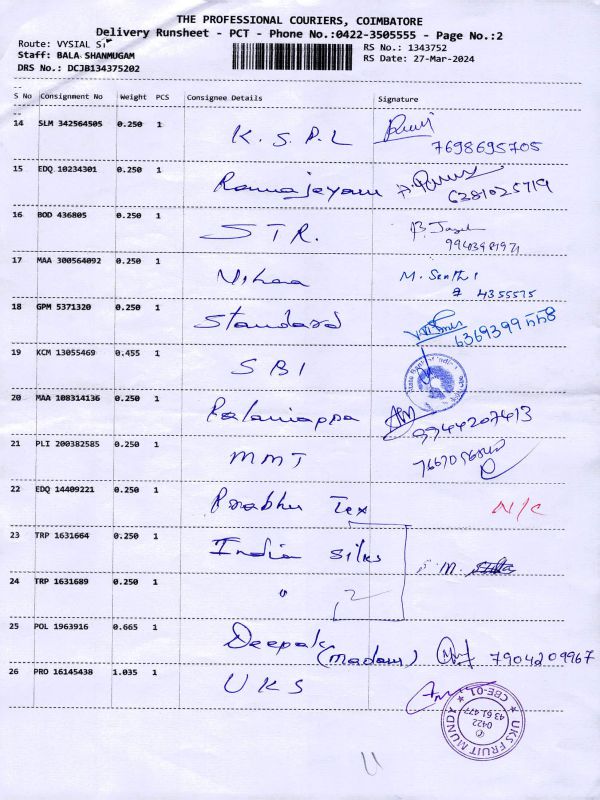 THE PROFESSIONAL COURIERS, COIMBATORE
Delivery Runsheet - PCT - Phone No.:0422-3505555 - Page No.:2
Route: VYSIAL St
RS No.: 1343752
Staff: BALA SHANMUGAM
RS Date: 27-Mar-2024
DRS No.: DCJB134375202
S No Consignment No Weight PCS Consignee Details Signature
14 SLM 342564505 0.250 1 K. S. P. L
7698695705
15 EDQ 10234301 0.250 1 Ramajeyam
6381025719
16 BOD 436805 0.250 1 STR.
17 MAA 300564092 0.250 1 Nihaa M. Senthil
4355575
18 GPM 5371320 0.250 1 Standard
6369399558
19 KCM 13055469 0.455 1 SBI
20 MAA 108314136 0.250 1 Palaniappa
9944207413
21 PLI 200382585 0.250 1 MMT
22 EDQ 14409221 0.250 1 Prabhu Tex N/C
23 TRP 1631664 0.250 1 India Silks M.
24 TRP 1631689 0.250 1 " 2
25 POL 1963916 0.665 1 Deepak (madam) 7904209967
26 PRO 16145438 1.035 1 UKS
UKS FRUIT MUNDY
CBE-01
0422
43 61 477